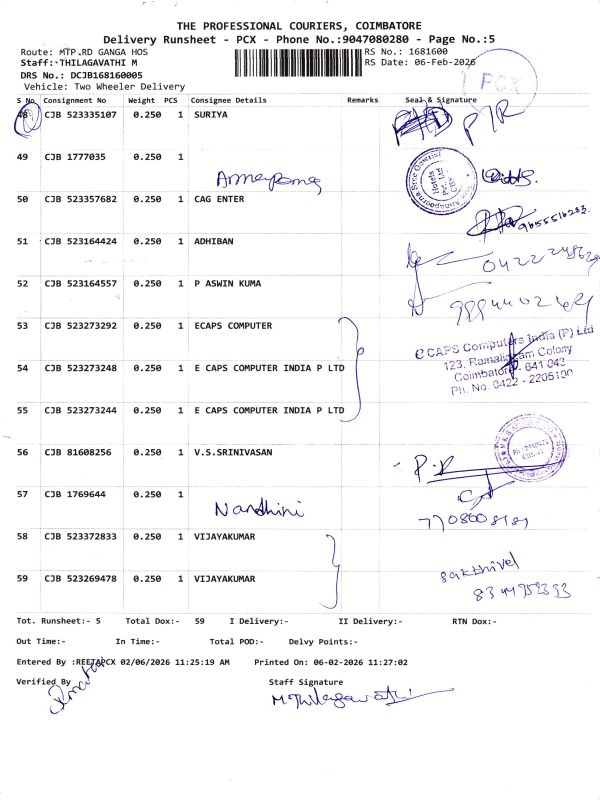 THE PROFESSIONAL COURIERS, COIMBATORE
Delivery Runsheet - PCX - Phone No.:9047080280 - Page No.:5
Route: MTP.RD GANGA HOS
RS No.: 1681600
Staff:-THILAGAVATHI M
RS Date: 06-Feb-2026
DRS No.: DCJB168160005
Vehicle: Two Wheeler Delivery
PCX
S No Consignment No Weight PCS Consignee Details Remarks Seal & Signature
48 CJB 523335107 0.250 1 SURIYA
49 CJB 1777035 0.250 1
50 CJB 523357682 0.250 1 CAG ENTER
9655516233
51 CJB 523164424 0.250 1 ADHIBAN
52 CJB 523164557 0.250 1 P ASWIN KUMA
53 CJB 523273292 0.250 1 ECAPS COMPUTER
54 CJB 523273248 0.250 1 E CAPS COMPUTER INDIA P LTD
55 CJB 523273244 0.250 1 E CAPS COMPUTER INDIA P LTD
e CAPS Computers India (P) Ltd
123, Ramalingam Colony
Coimbatore - 641 043
Ph. No. 0422 - 2205100
56 CJB 81608256 0.250 1 V.S.SRINIVASAN
57 CJB 1769644 0.250 1 Nandhini
58 CJB 523372833 0.250 1 VIJAYAKUMAR
59 CJB 523269478 0.250 1 VIJAYAKUMAR
Sakthivel
Tot. Runsheet:- 5 Total Dox:- 59 I Delivery:- II Delivery:- RTN Dox:-
Out Time:- In Time:- Total POD:- Delvy Points:-
Entered By :REETAPCX 02/06/2026 11:25:19 AM Printed On: 06-02-2026 11:27:02
Verified By Staff Signature
M.Thilagavathi